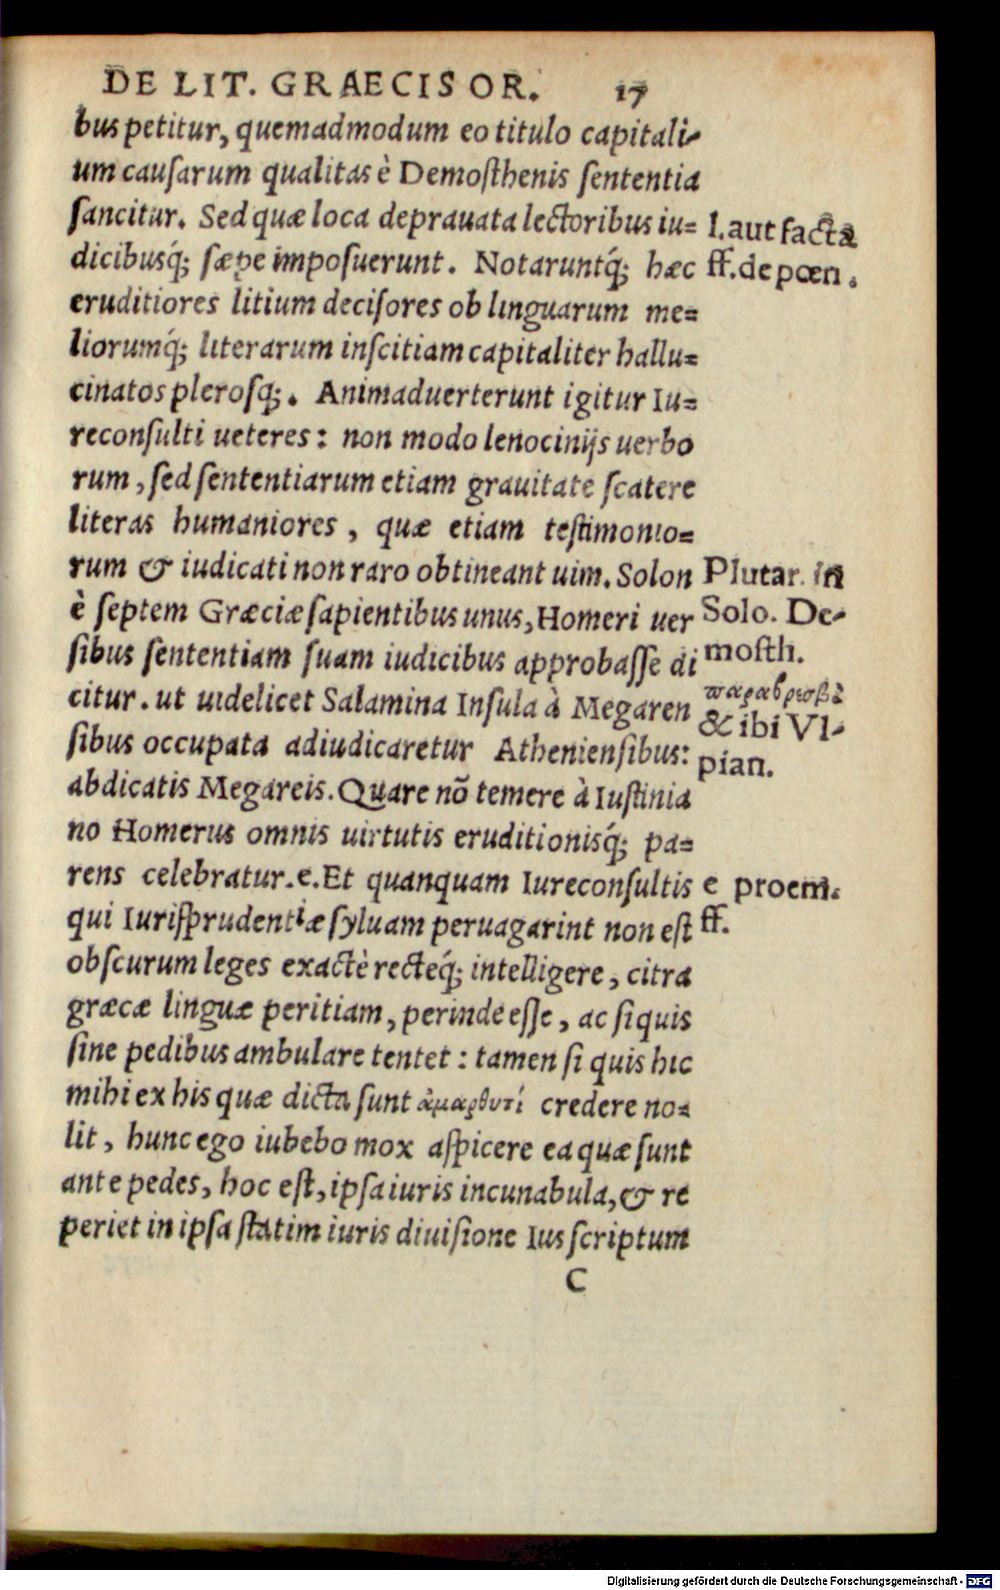 DE LIT. GRAECIS OR. 17
bus petitur, quemadmodum eo titulo capitali-
um causarum qualitas è Demosthenis sententia
sancitur. Sed quæ loca deprauata lectoribus iu=
dicibusq́; sæpe imposuerunt. Notaruntq́; hæc
eruditiores litium decisores ob linguarum me=
liorumq́; literarum inscitiam capitaliter hallu=
cinatos plerosq;. Animaduerterunt igitur Iu=
reconsulti ueteres: non modo lenocinijs uerbo
rum, sed sententiarum etiam grauitate scatere
literas humaniores, quæ etiam testimonio=
rum & iudicati non raro obtineant uim. Solon
è septem Græciæ sapientibus unus, Homeri uer
sibus sententiam suam iudicibus approbasse di
citur. ut uidelicet Salamina Insula à Megaren
sibus occupata adiudicaretur Atheniensibus:
abdicatis Megareis. Quare nõ temere à Iustinia
no Homerus omnis uirtutis eruditionisq́; pa=
rens celebratur.e.Et quanquam Iureconsultis
qui Iurisprudentiæ syluam peruagarint non est
obscurum leges exactè recteq́; intelligere, citra
græcæ linguæ peritiam, perinde esse, ac si quis
sine pedibus ambulare tentet: tamen si quis hic
mihi ex his quæ dicta sunt ἀμαρθυτί credere no=
lit, hunc ego iubebo mox aspicere ea quæ sunt
ante pedes, hoc est, ipsa iuris incunabula, & re
periet in ipsa statim iuris diuisione Ius scriptum
C
l. aut facta
ff. de pœn.
Plutar. in
Solo. De-
mosth.
& ibi Vl-
pian.
e proem.
ff.
Digitalisierung gefördert durch die Deutsche Forschungsgemeinschaft - DFG